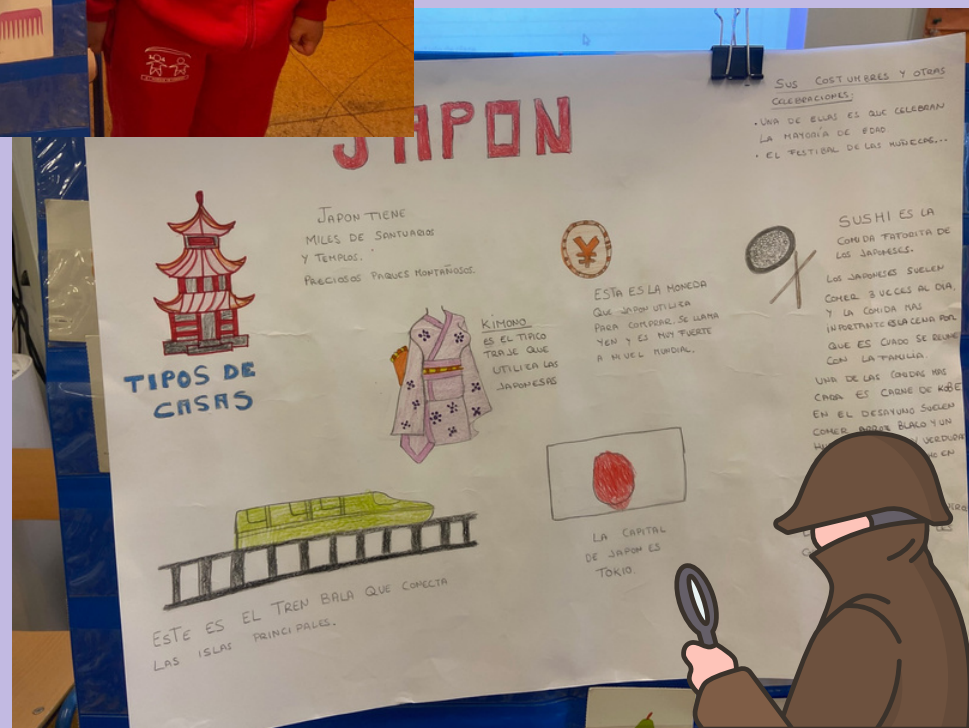 JAPON
SUS COSTUMBRES Y OTRAS
CELEBRACIONES:
• UNA DE ELLAS ES QUE CELEBRAN
LA MAYORÍA DE EDAD
• EL FESTIBAL DE LAS MUÑECAS...
JAPON TIENE
MILES DE SANTUARIOS
Y TEMPLOS.
PRECIOSOS PAQUES MONTAÑOSOS.
TIPOS DE
CASAS
KIMONO.
ES EL TIPICO
TRAJE QUE
UTILIZA LAS
JAPONESAS
ESTA ES LA MONEDA
QUE JAPON UTILIZA
PARA COMPRAR, SE LLAMA
YEN Y ES MUY FUERTE
A NIVEL MUNDIAL.
SUSHI ES LA
COMIDA FATORITA DE
LOS JAPONESES.
LOS JAPONESES SUELEN
COMER 3 VECES AL DIA,
Y LA COMIDA MAS
INPORTANTE ES LA CENA POR
QUE ES CUADO SE REUNE
CON LA FAMILIA.
UNA DE LAS COMIDAS MAS
CARA ES CARNE DE KOBE
EN EL DESAYUNO SUELEN
COMER ARROZ BLACO Y UN
Y VERDURAS
EN
LA CAPITAL
DE JAPON ES
TOKIO.
ESTE ES EL TREN BALA QUE CONECTA
LAS ISLAS PRINCIPALES.